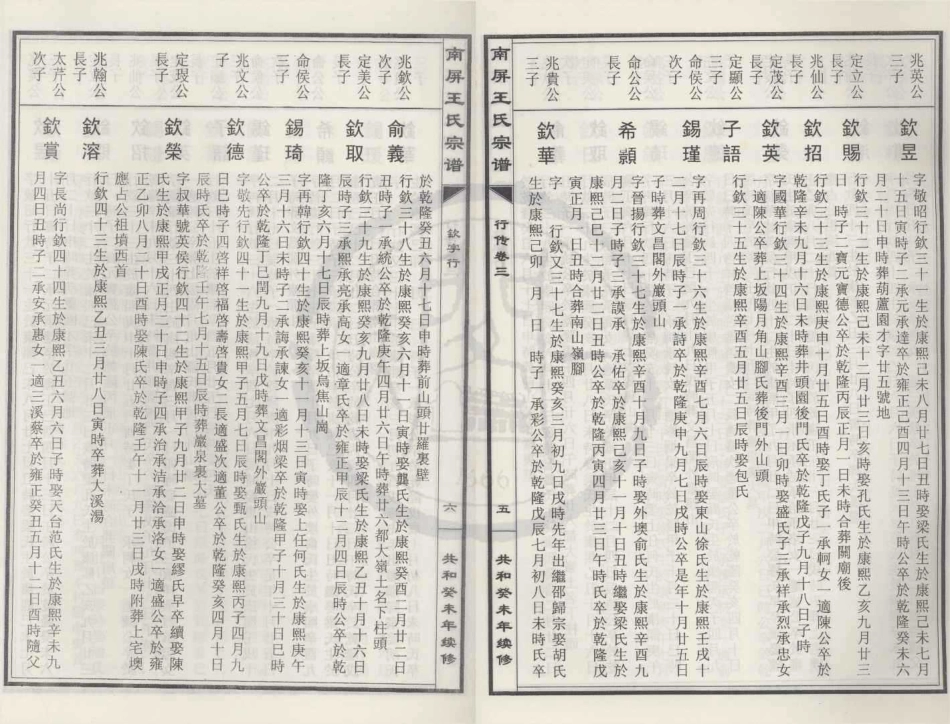 兆英公
三子
欽昱
字敬昭行欽三十一生於康熙己未八月廿七日丑時娶梁氏生於康熙辛未七月
十五日寅時子二承元承達卒於雍正己酉四月十三日午時公卒於乾隆癸未六
月二十日申時葬葫蘆園才字廿五號地
定立公
長子
欽賜
行欽三十二生於康熙己未十二月廿三日亥時娶孔氏生於康熙乙亥九月廿三
日 時子二寶元寶德公卒於乾隆丙辰正月一日未時合葬關廟後
兆仙公
長子
欽招
行欽三十三生於康熙庚申十月廿五日酉時娶丁氏子一承軻女一適陳公卒於
乾隆辛未九月十六日未時葬井頭園後門氏卒於乾隆戊子九月十八日子時
定茂公
長子
欽英
字國華行欽三十四生於康熙辛酉三月一日卯時娶盛氏子三承祥承烈承忠女
一適陳公卒葬上坂陽月角山腳氏葬後門外山頭
定顯公
三子
子語
行欽三十五生於康熙辛酉五月廿五日辰時娶包氏
命侯公
次子
錫瑾
字再周行欽三十六生於康熙辛酉七月六日辰時娶東山徐氏生於康熙壬戌十
二月十七日辰時子一承詩卒於乾隆庚申九月七日戌時公卒是年十月廿五日
子時葬文昌閣外巖頭山
命公公
長子
希顥
字晉揚行欽三十七生於康熙辛酉十月九日子時娶外墺俞氏生於康熙辛酉九
月二日子時子三承謨承 承佑卒於康熙己亥十一月十日丑時繼娶梁氏生於
康熙己巳十二月廿二日丑時公卒於乾隆丙寅四月廿三日午時氏卒於乾隆戊
寅正月一日丑時合葬南山嶺腳
兆貴公
三子
欽華
字 行欽又三十七生於康熙癸亥三月初九日戌時先年出繼邵歸宗娶胡氏
生於康熙己卯 月 日 時子一承彩公卒於乾隆戊辰七月初八日未時氏卒
南屏王氏宗谱
行传卷三
五
共和癸未年续修
南屏王氏宗谱
欽字行
六
共和癸未年续修
於乾隆癸丑六月十七日申時葬前山頭廿羅裏壁
兆欽公
次子
俞義
行欽三十八生於康熙癸亥六月十一日寅時娶龔氏生於康熙癸酉二月廿二日
丑時子一承統公卒於乾隆庚午四月廿六日午時葬廿六都大嶺土名下柱頭
定美公
長子
欽取
行欽三十九生於康熙癸亥九月廿八日未時娶梁氏生於康熙乙丑十月十六日
辰時子三承熙承亮承高女一適章氏卒於雍正甲辰十二月四日辰時公卒於乾
隆丁亥六月十七日辰時葬上坂烏焦山崗
命侯公
三子
錫琦
字再韓行欽四十生於康熙癸亥十一月十三日寅時娶上任何氏生於康熙庚午
三月十六日未時子二承誨承諫女一適彩烟梁卒於乾隆甲子十月三十日巳時
公卒於乾隆丁巳閏九月十九日戌時葬文昌閣外巖頭山
兆文公
子
欽德
字敬先行欽四十一生於康熙甲子五月七日辰時娶甄氏生於康熙丙子四月九
日巳時子四啓祥啓福啓壽啓貴女二長適盛次適董公卒於乾隆癸亥四月十日
辰時氏卒於乾隆壬午七月十五日辰時葬巖泉裏大墓
定琝公
長子
欽榮
字叔華號英侯行欽四十二生於康熙甲子九月廿二日申時娶繆氏早卒續娶陳
氏生於康熙甲戌正月二十日申時子四承治承洁承洽承洛女一適盛公卒於雍
正乙卯八月二十日酉時娶陳氏卒於乾隆壬午十一月廿三日戌時附葬上宅墺
應占公祖墳西首
兆翰公
長子
欽溶
行欽四十三生於康熙乙丑三月廿八日寅時卒葬大溪湯
太芹公
次子
欽賞
字長尚行欽四十四生於康熙乙丑六月六日子時娶天台范氏生於康熙辛未九
月四日丑時子二承安承惠女一適三溪蔡卒於雍正癸丑五月十二日酉時隨父